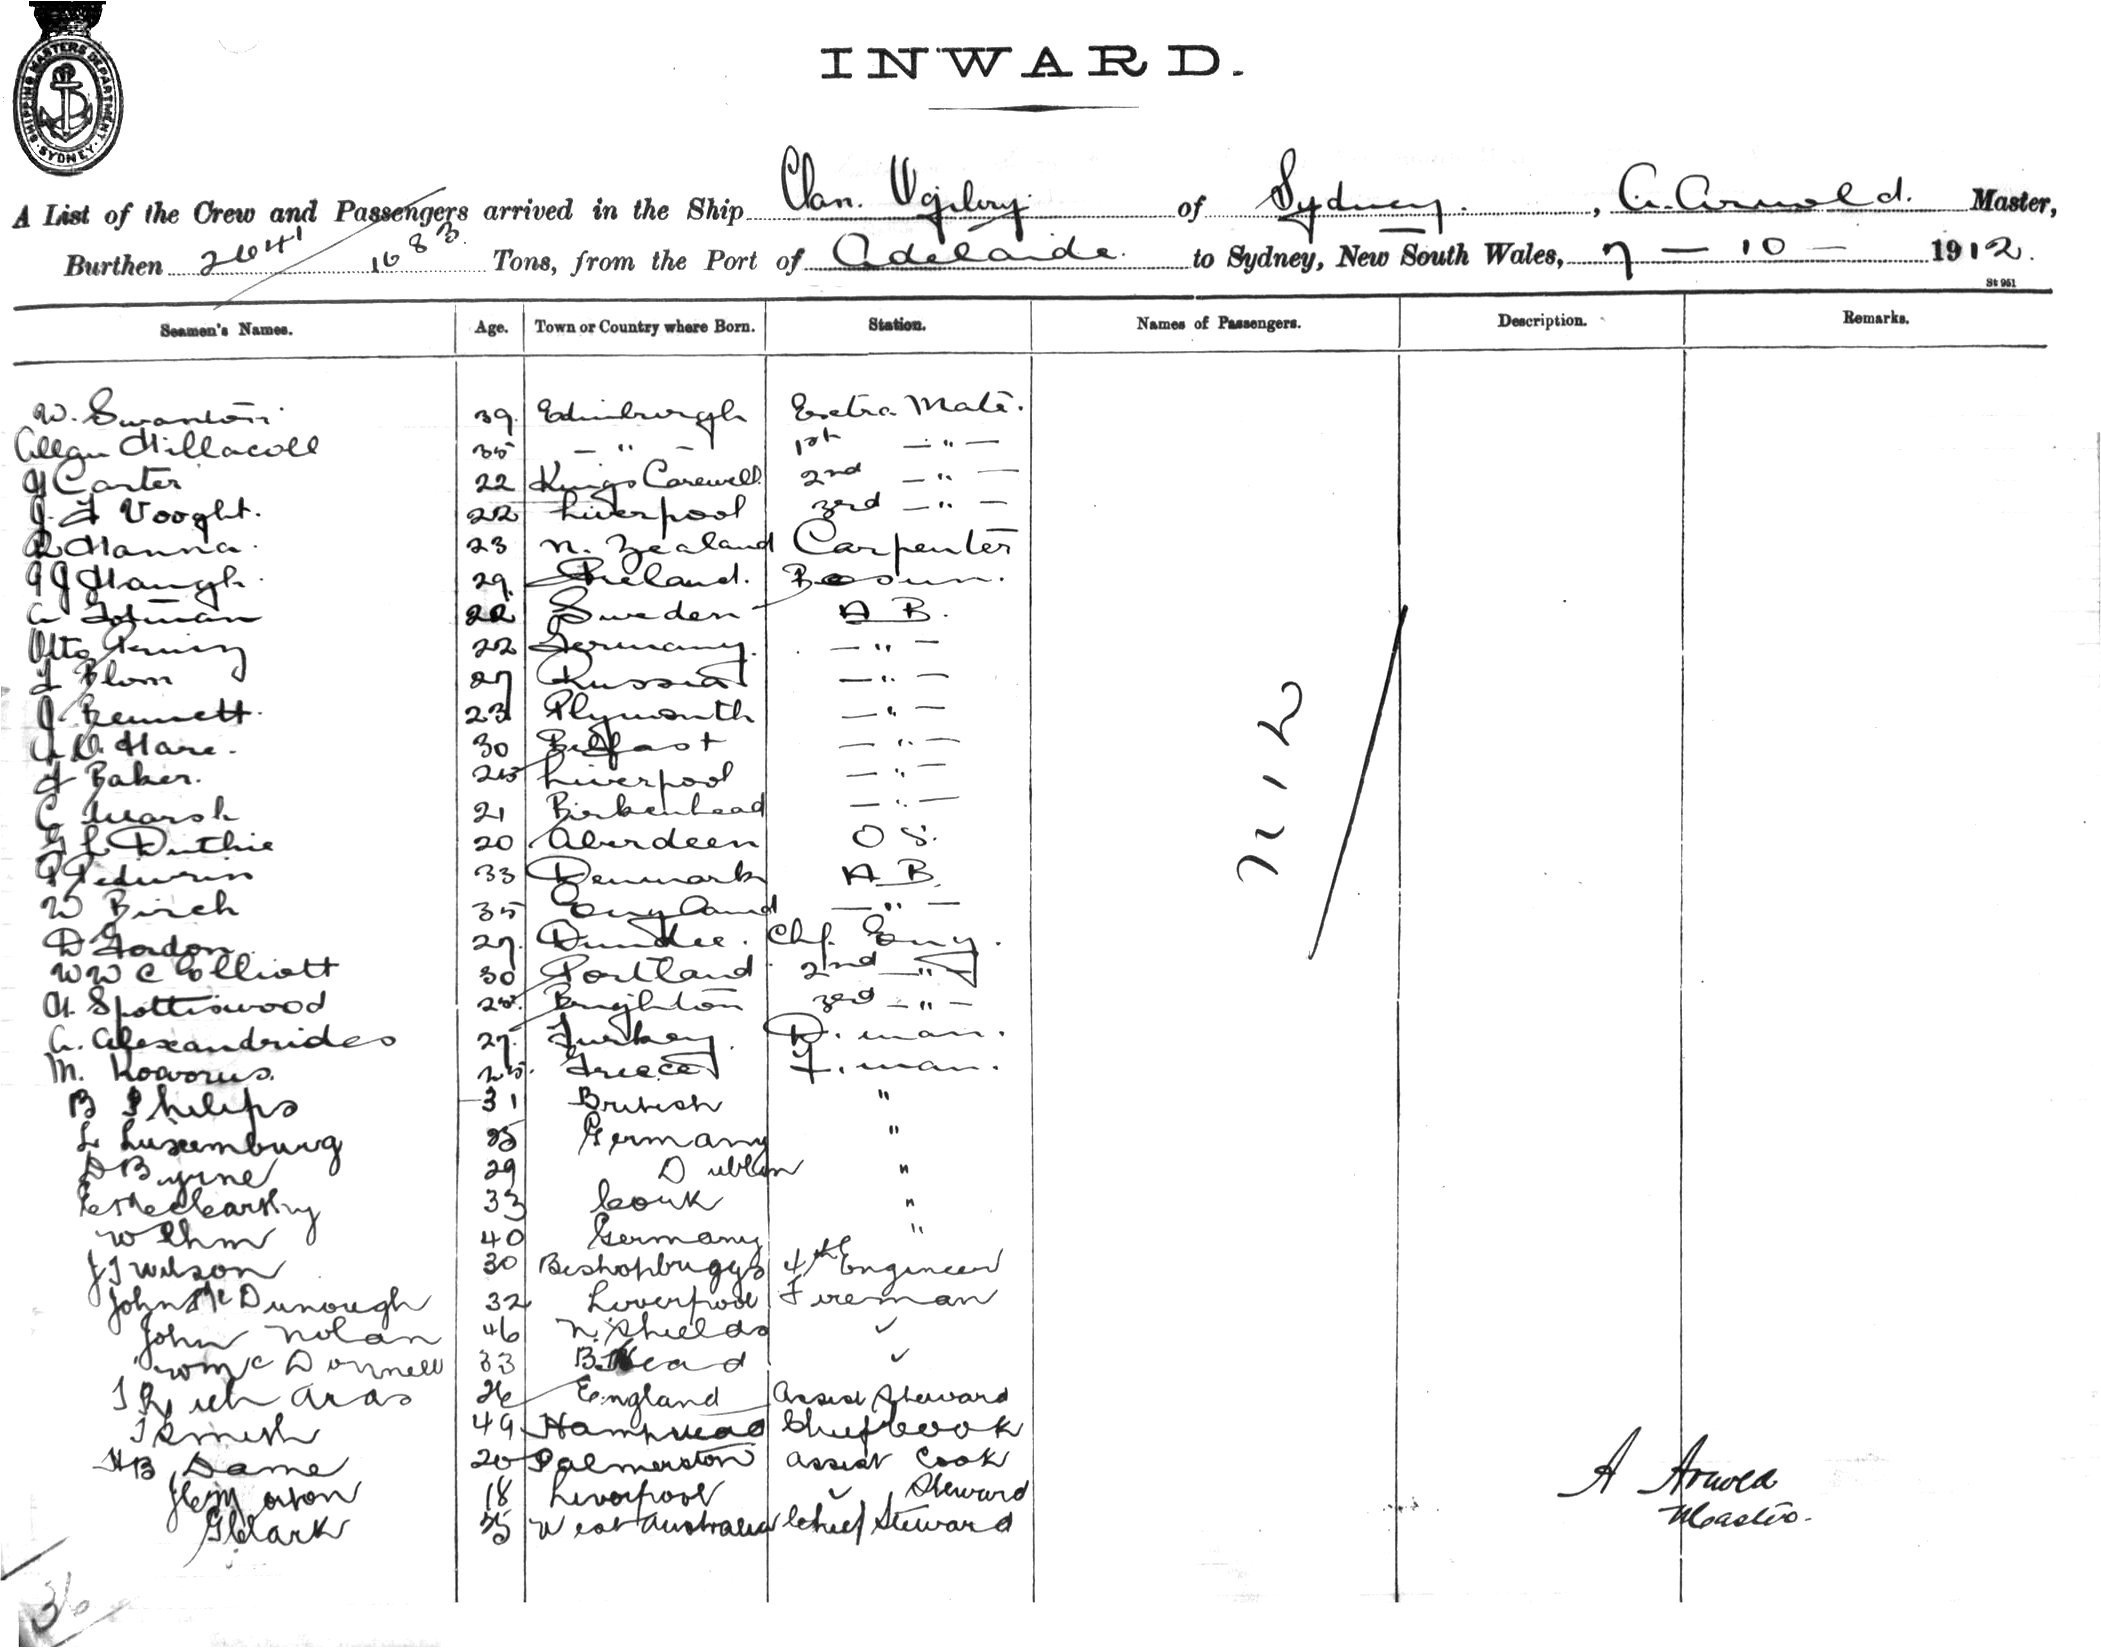 SHIPPING MASTERS DEPARTMENT
SYDNEY
INWARD.
A List of the Crew and Passengers arrived in the Ship Clan. Ogilvy of Sydney. , A. Arnold. Master,
Burthen 2641 1683 Tons, from the Port of Adelaide. to Sydney, New South Wales, 7 - 10 - 1912.
St 951
Seamen's Names. Age. Town or Country where Born. Station. Names of Passengers. Description. Remarks.
W. Swanton 39 Edinburgh Extra Mate.
Allan 35 - " - 1st - " -
Carter 22 Kings 2nd - " -
J. F Vooght. 22 Liverpool 3rd - " -
R Hanna. 23 N. Zealand Carpenter
J J Haugh. 29 Ireland. Bosun.
A 22 Sweden A B.
Otto 22 Germany. - " -
F Blom 27 Russia - " -
J. Bennett. 23 Plymouth - " -
A. O. Hare. 30 Belfast - " -
F Baker. 25 Liverpool - " -
C Marsh 21 Birkenhead - " -
G L Duthie 20 Aberdeen O S.
P 33 Denmark A B.
W Birch 35 England - " -
D Gordon. 27. Dundee. Chf. Eng.
W W C Elliott 30 Portland 2nd - " -
A. Spottiswood 25. Brighton 3rd - " -
A. Alexandrides 27. Turkey. D. man.
M. 25. Greece F. man.
B Philips 31 British "
L Luxemburg 25 Germany "
D Byrne 29 Dublin "
McCarthy 33 Cork "
W Ehm 40 Germany "
J T Wilson 30 Bishopbriggs 4th Engineer
John McDunough 32 Liverpool Fireman
John Nolan 46 N. Shields ✓
W McDonnell 33 B Head ✓
T Richards 26 England Assist Steward
T Smith 49 Hampstead Chief Cook
H B Dame 20 Palmerston Assist Cook
Morton 18 Liverpool ✓ Steward
G Clark 35 West Australia Chief Steward
A Arnold
Master.
36